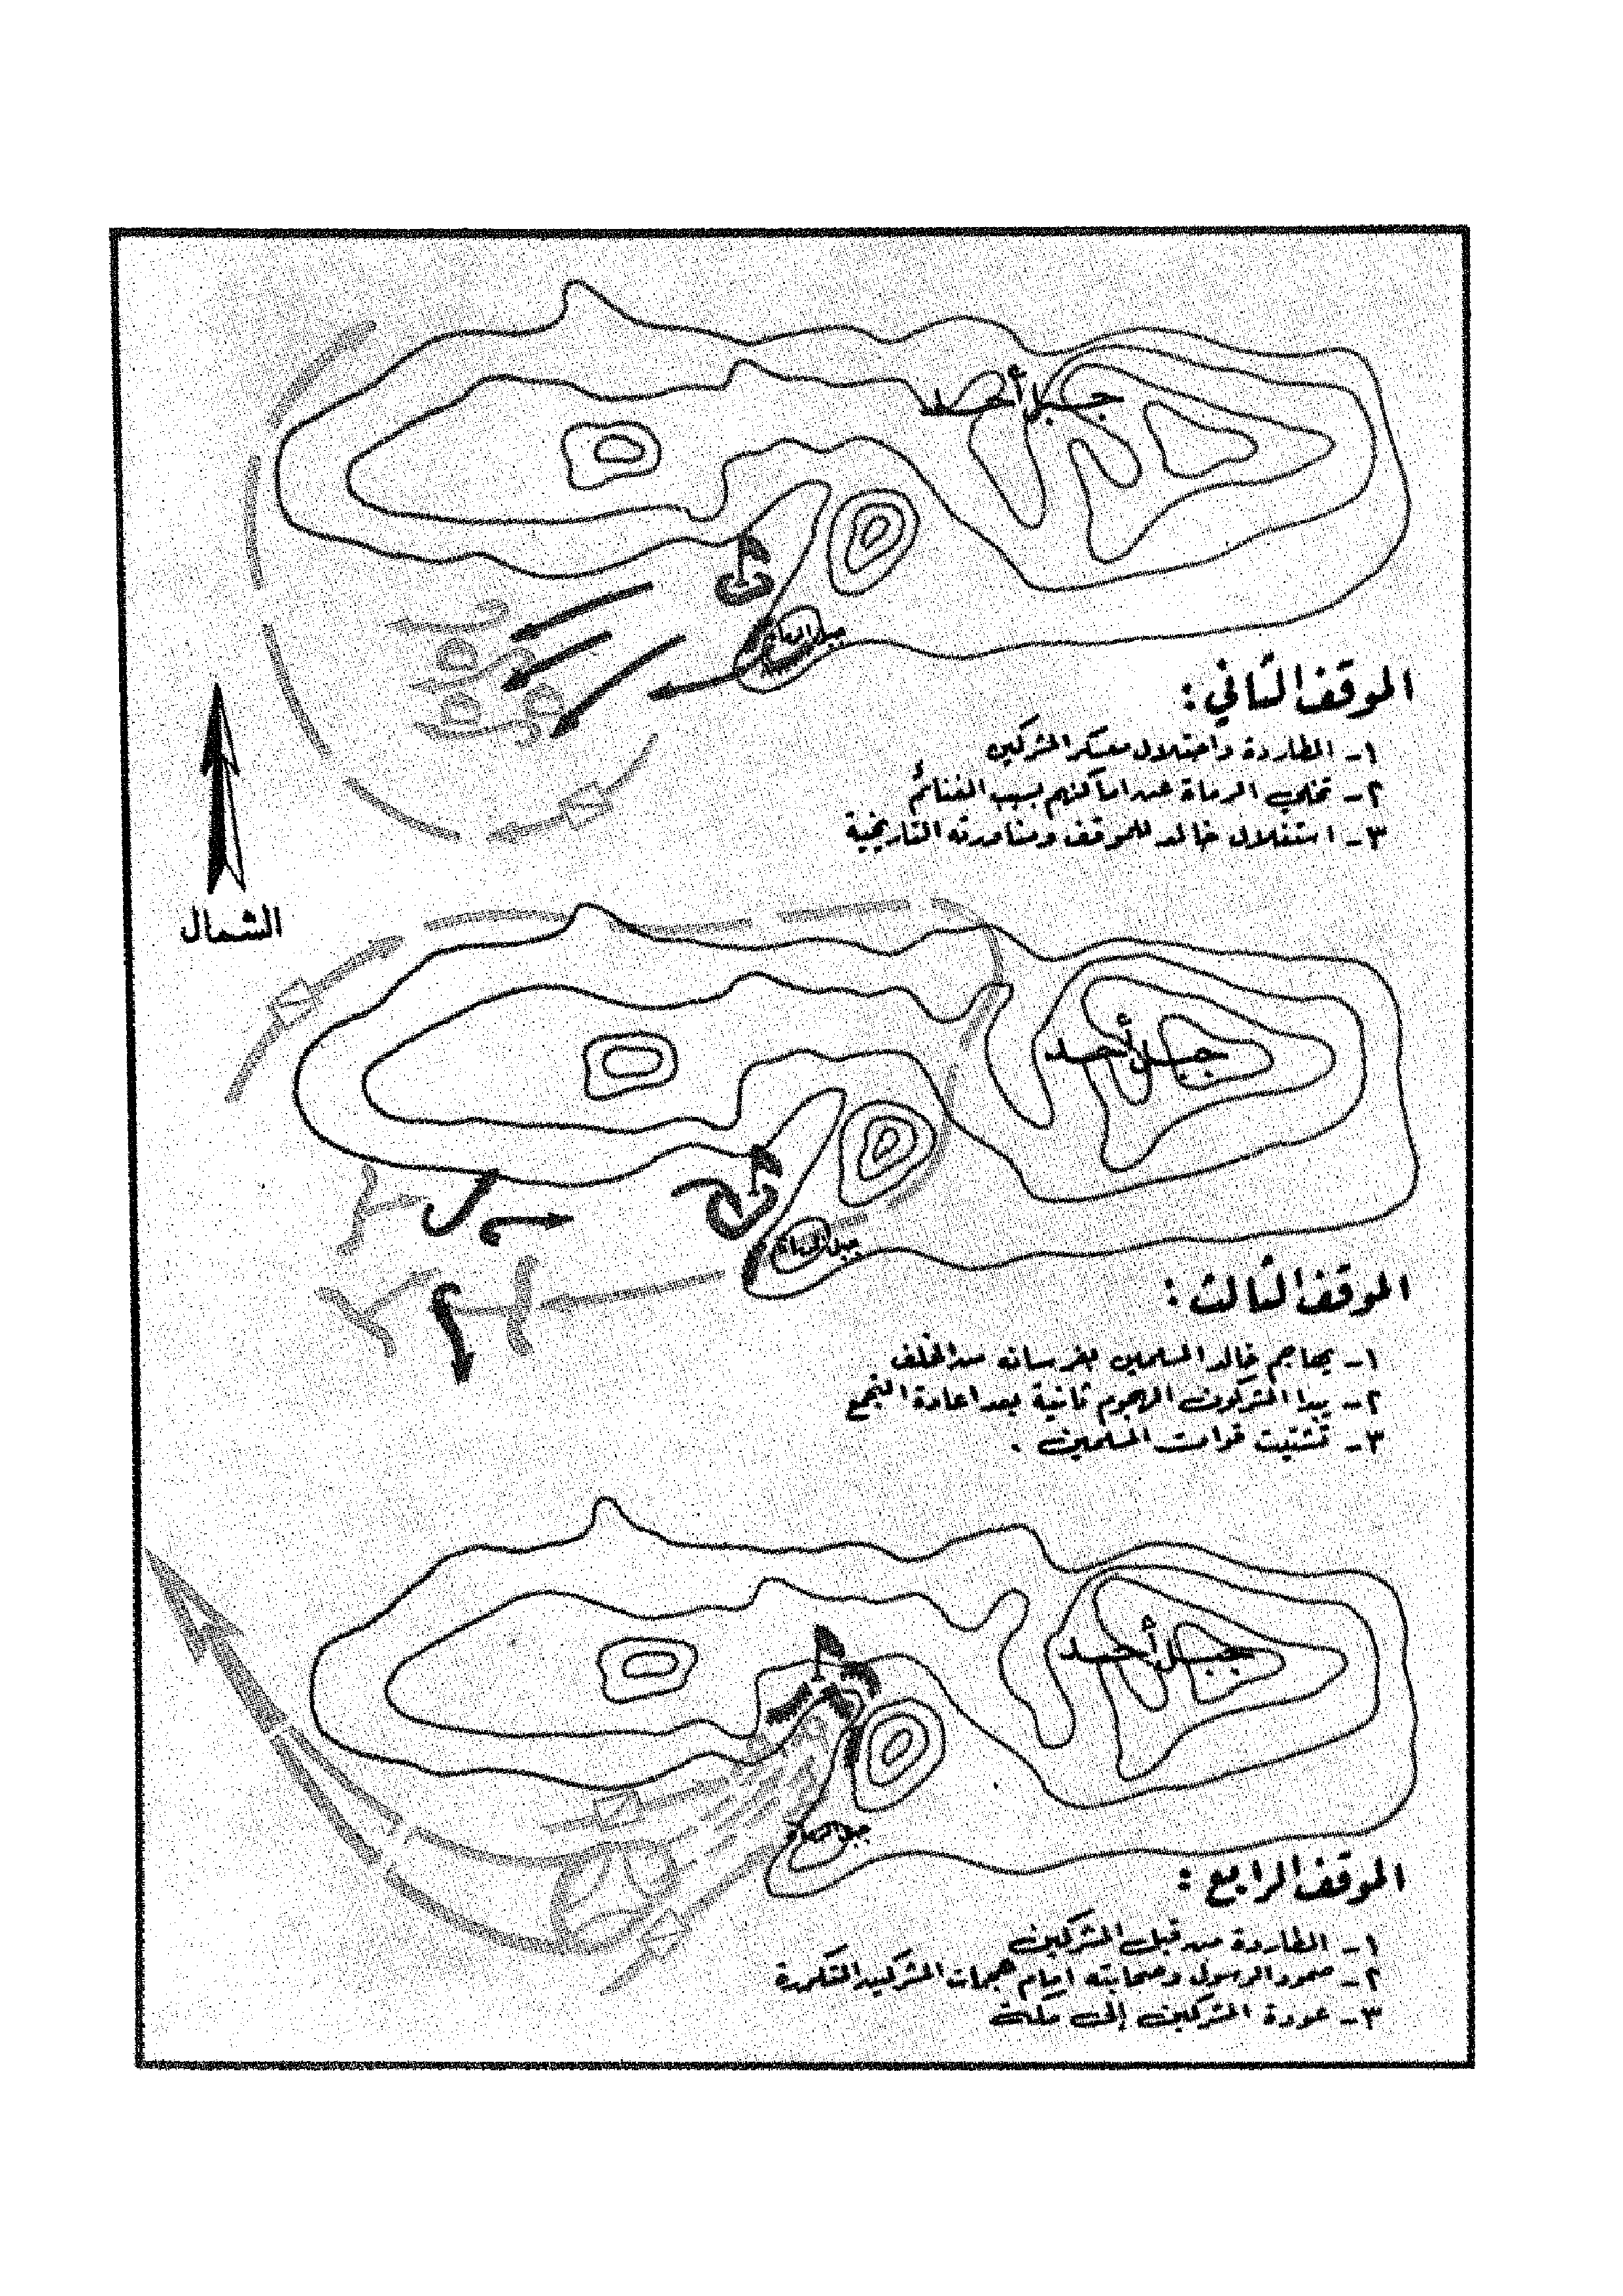 جبل أحد
جبل الرماة
الموقف الثاني:
١- المطاردة واحتلال معسكر المشركين
٢- تخلي الرماة عن اماكنهم بسبب الغنائم
٣- استغلال خالد للموقف ومناورته التاريخية
الشمال
جبل أحد
جبل الرماة
الموقف الثالث:
١- يهاجم خالد المسلمين بفرسانه من الخلف
٢- يبدا المشركون الهجوم ثانية بعد اعادة التجمع
٣- تشتيت قوات المسلمين .
جبل أحد
جبل الرماة
الموقف الرابع:
١- المطاردة من قبل المشركين
٢- صمود الرسول وصحابته امام هجمات المشركين المتكررة
٣- عودة المشركين إلى مكة